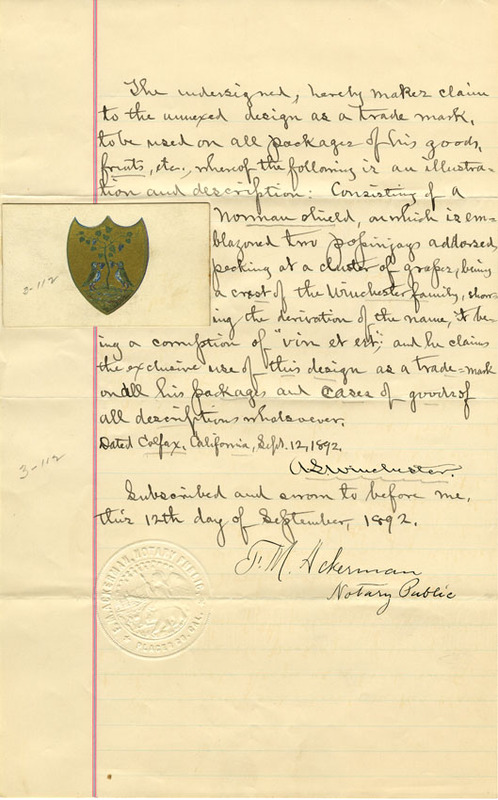 The undersigned, hereby makes claim
to the annexed design as a trade mark,
to be used on all packages of his goods,
fruits, etc., whereof the following is an illustra-
tion and description: Consisting of a
Norman shield, on which is em-
blazoned two popinjays addorsed,
pecking at a cluster of grapes, being
a crest of the Winchester family, show-
ing the derivation of the name, it be-
ing a corruption of "vin et est"; and he claims
the exclusive use of this design as a trade=mark
on all his packages and cases of goods of
all descriptions whatsoever.
Dated Colfax, California, Sept. 12, 1892.
A S Winchester.
Subscribed and sworn to before me,
this 12th day of September, 1892.
F. M. Ackerman
Notary Public
3-112
3-112
F. M. ACKERMAN, NOTARY PUBLIC,
PLACER CO. CAL.